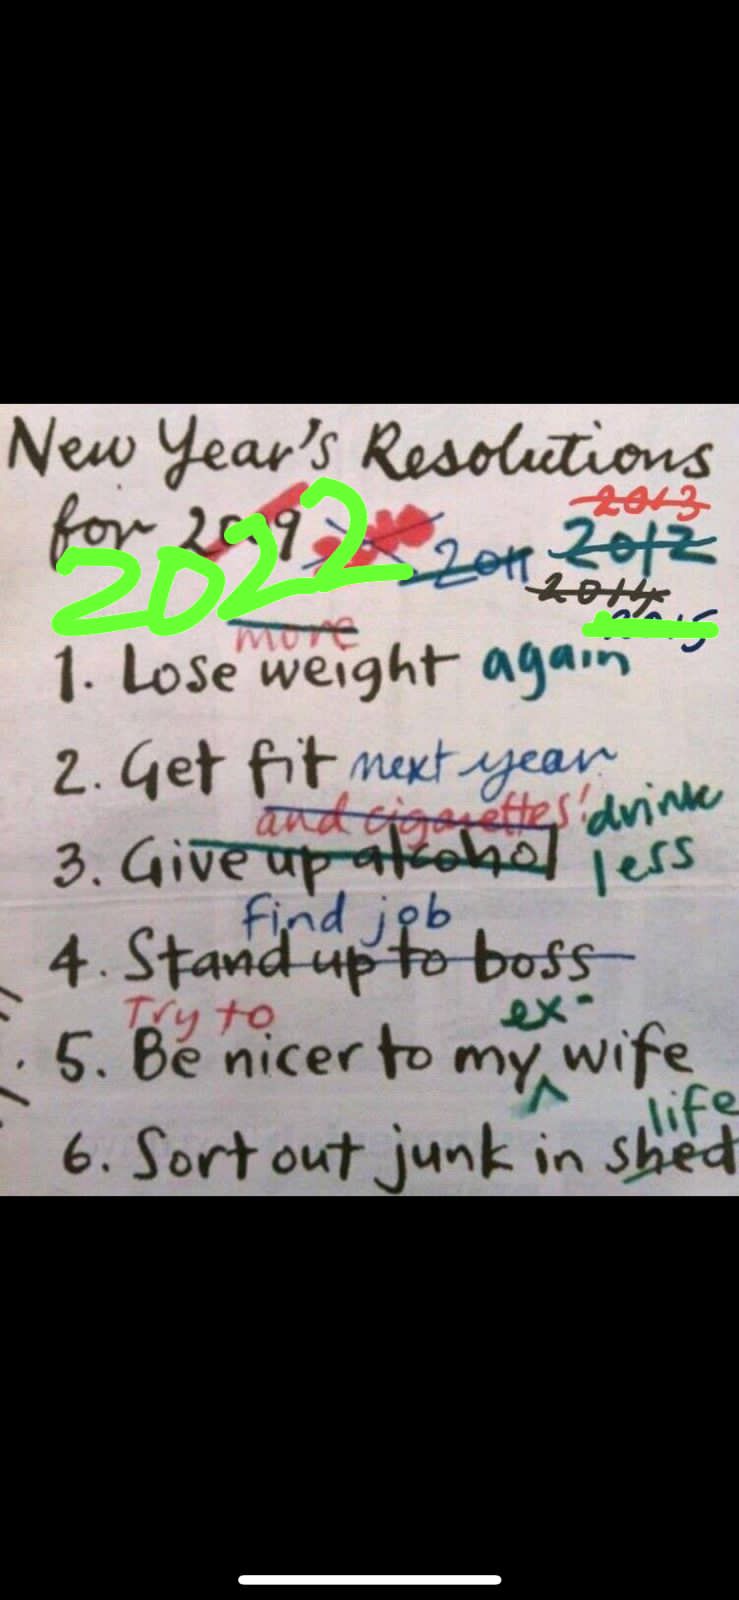 New Year's Resolutions
2013
for 2009 2011 2012
2022 2014
2015
more
1. Lose weight again
2. Get fit next year
and cigarettes! drink
3. Give up alcohol less
find job
4. Stand up to boss
Try to ex-
5. Be nicer to my wife
life
6. Sort out junk in shed